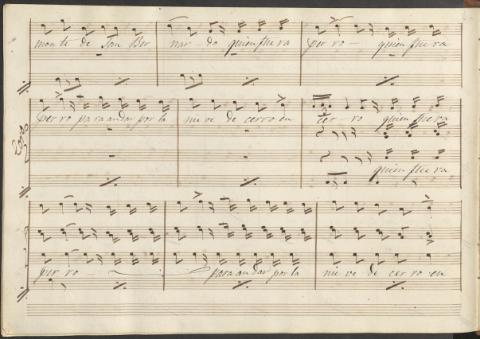 monte de San Ber nar - do quien fuera perro - quien fuera
perro para andar por la nieve de cerro en cer - ro quien fuera
quien fuera
perro para andar por la nieve de cerro en